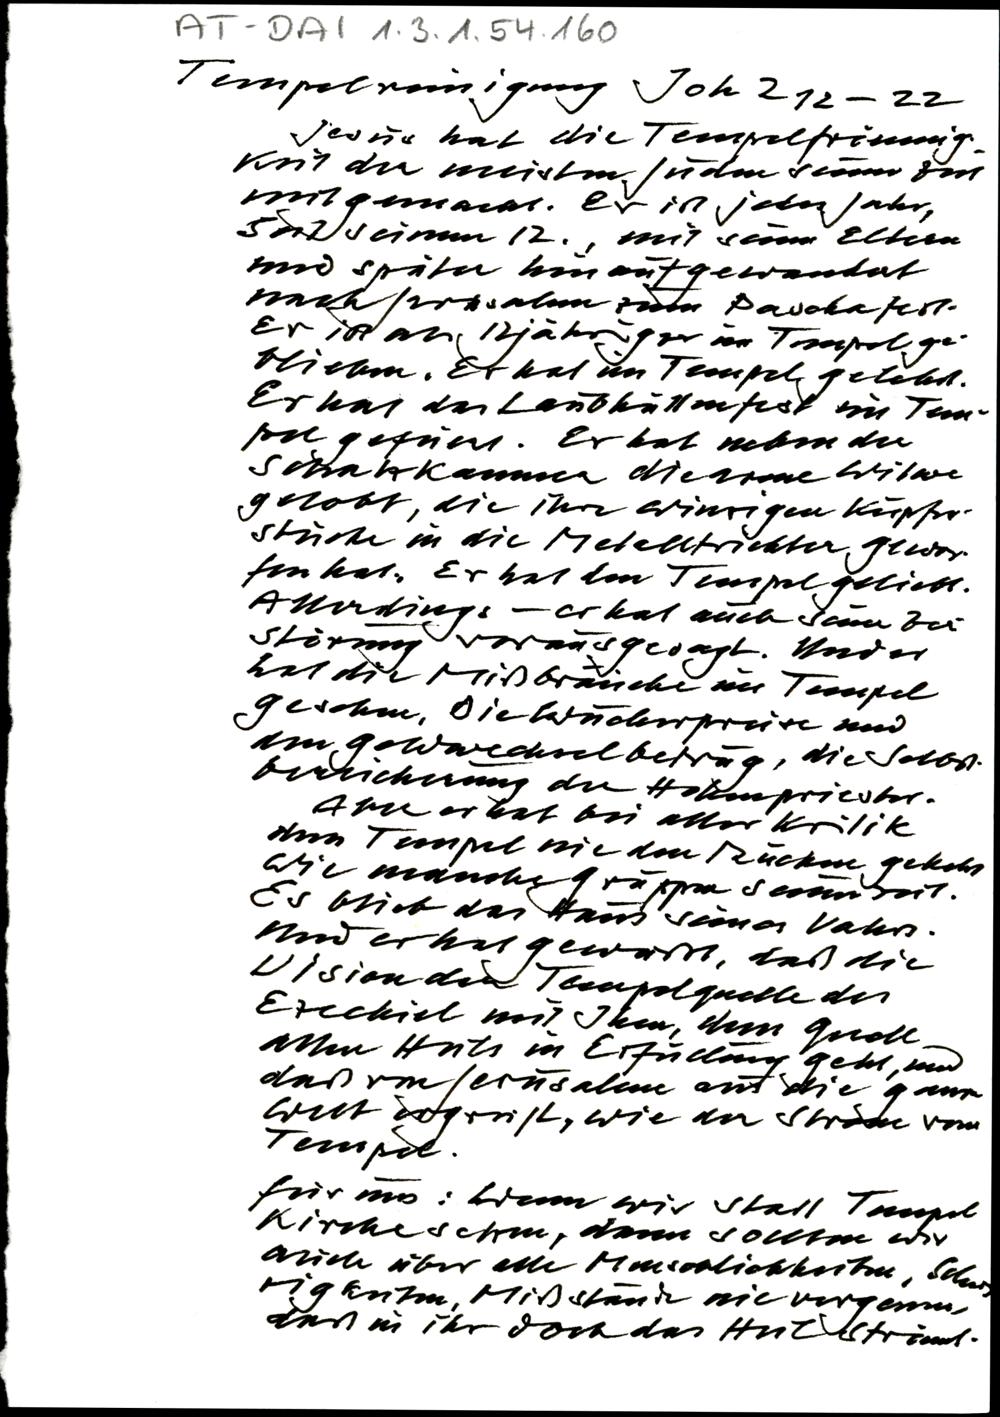 AT-DAI 1.3.1.54.160
Tempelreinigung Joh 2 12–22
Jesus hat die Tempelfrömmig-
keit der meisten Juden seiner Zeit
mitgemacht. Er ist jedes Jahr,
seit seinem 12., mit seinen Eltern
und später hinaufgewandert
nach Jerusalem zum Paschafest.
Er ist als 12jähriger im Tempel ge-
blieben. Er hat im Tempel gelehrt.
Er hat das Laubhüttenfest im Tem-
pel gefeiert. Er hat neben der
Schatzkammer die arme Witwe
gelobt, die ihre winzigen Kupfer-
stücke in die Metalltrichter gewor-
fen hat. Er hat den Tempel geliebt.
Allerdings – er hat auch seine Zer-
störung vorausgesagt. Und er
hat die Mißbräuche im Tempel
gesehen, Die Wucherpreise und
den Geldwechselbetrug, die Selbst-
bereicherung der Hohenpriester.
Aber er hat bei aller Kritik
dem Tempel nie den Rücken gekehrt
wie manche Gruppen seiner Zeit.
Es blieb das Haus seines Vaters.
Und er hat gewußt, daß die
Vision der Tempelquelle des
Ezechiel mit Ihm, dem Quell
allen Heils in Erfüllung geht, und
daß von Jerusalem aus die ganze
Welt ergreift, wie der Strom vom
Tempel.
Für uns: Wenn wir statt Tempel
Kirche setzen, dann sollten wir
auch über alle Menschlichkeiten, Schwie
rigkeiten, Mißstände nie vergessen,
daß in ihr doch das Heil strömt.